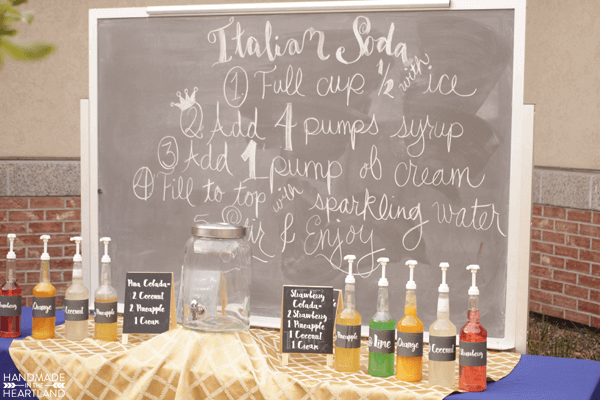 Italian Soda
1. Full cup 1/2 with ice
2. Add 4 pumps syrup
3 Add 1 pump of cream
4 Fill to top with sparkling water
5. Stir & Enjoy
Berry
Orange
Coconut
Pineapple
Pina Colada-
2 Coconut
2 Pineapple
1 Cream
Strawberry
Colada-
2 Strawberry
1 Pineapple
1 Coconut
1 Cream
Pineapple
Lime
Orange
Coconut
Strawberry
HANDMADE
IN THE
HEARTLAND